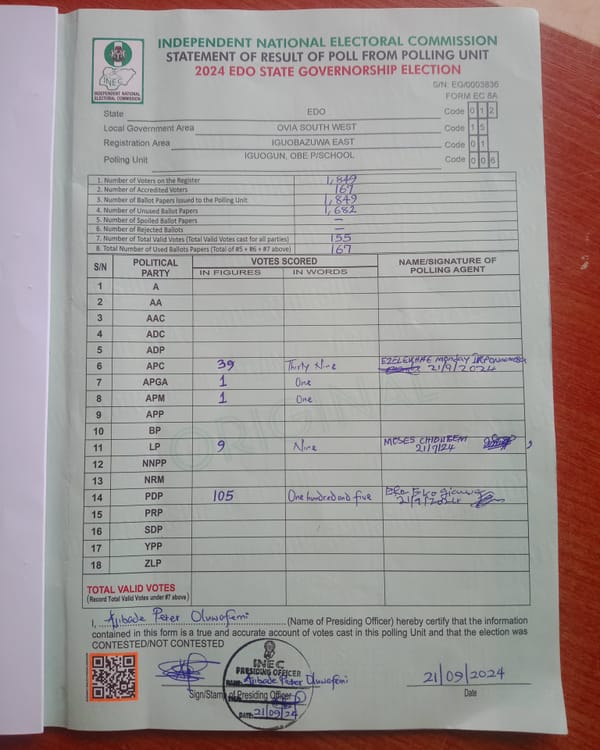 INDEPENDENT NATIONAL ELECTORAL COMMISSION
STATEMENT OF RESULT OF POLL FROM POLLING UNIT
2024 EDO STATE GOVERNORSHIP ELECTION
INEC
INDEPENDENT NATIONAL ELECTORAL COMMISSION
S/N: EG/0003836
FORM EC 8A
State EDO Code 0 1 2
Local Government Area OVIA SOUTH WEST Code 1 5
Registration Area IGUOBAZUWA EAST Code 0 1
Polling Unit IGUOGUN, OBE P/SCHOOL Code 0 0 6
1. Number of Voters on the Register 1,849
2. Number of Accredited Voters 167
3. Number of Ballot Papers Issued to the Polling Unit 1,849
4. Number of Unused Ballot Papers 1,682
5. Number of Spoiled Ballot Papers –
6. Number of Rejected Ballots –
7. Number of Total Valid Votes (Total Valid Votes cast for all parties) 155
8. Total Number of Used Ballots Papers (Total of #5 + #6 + #7 above) 167
S/N POLITICAL PARTY VOTES SCORED NAME/SIGNATURE OF POLLING AGENT
IN FIGURES IN WORDS
1 A
2 AA
3 AAC
4 ADC
5 ADP
6 APC 39 Thirty Nine 21/9/2024
7 APGA 1 One
8 APM 1 One
9 APP
10 BP
11 LP 9 Nine MOSES 21/9/24
12 NNPP
13 NRM
14 PDP 105 One hundred and five 21/9/2024
15 PRP
16 SDP
17 YPP
18 ZLP
ORIGINAL
TOTAL VALID VOTES
(Record Total Valid Votes under #7 above)
I, Ajibade Peter Oluwafemi (Name of Presiding Officer) hereby certify that the information
contained in this form is a true and accurate account of votes cast in this polling Unit and that the election was
CONTESTED/NOT CONTESTED
INEC
PRESIDING OFFICER
NAME: Ajibade Peter Oluwafemi
SIGN:
DATE: 21/09/24
Sign/Stamp of Presiding Officer
21/09/2024
Date